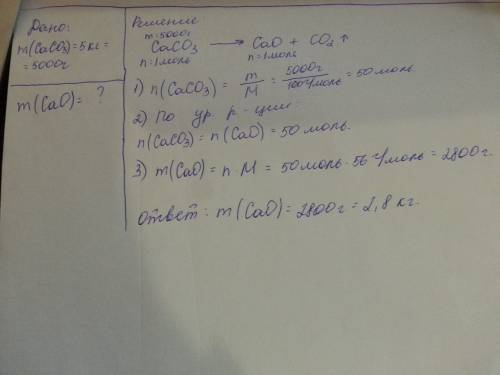 Дано:
m(CaCO₃)=5кг=
=5000г
m(CaO)= ?
Решение
m=5000г
CaCO₃ → CaO + CO₂ ↑
n=1моль n=1моль
1) n(CaCO₃) = m/M = 5000г/100г/моль = 50 моль.
2) По ур. р-ции:
n(CaCO₃) = n(CaO) = 50 моль.
3) m(CaO) = n · M = 50 моль · 56 г/моль = 2800г.
Ответ: m(CaO) = 2800г = 2,8 кг.